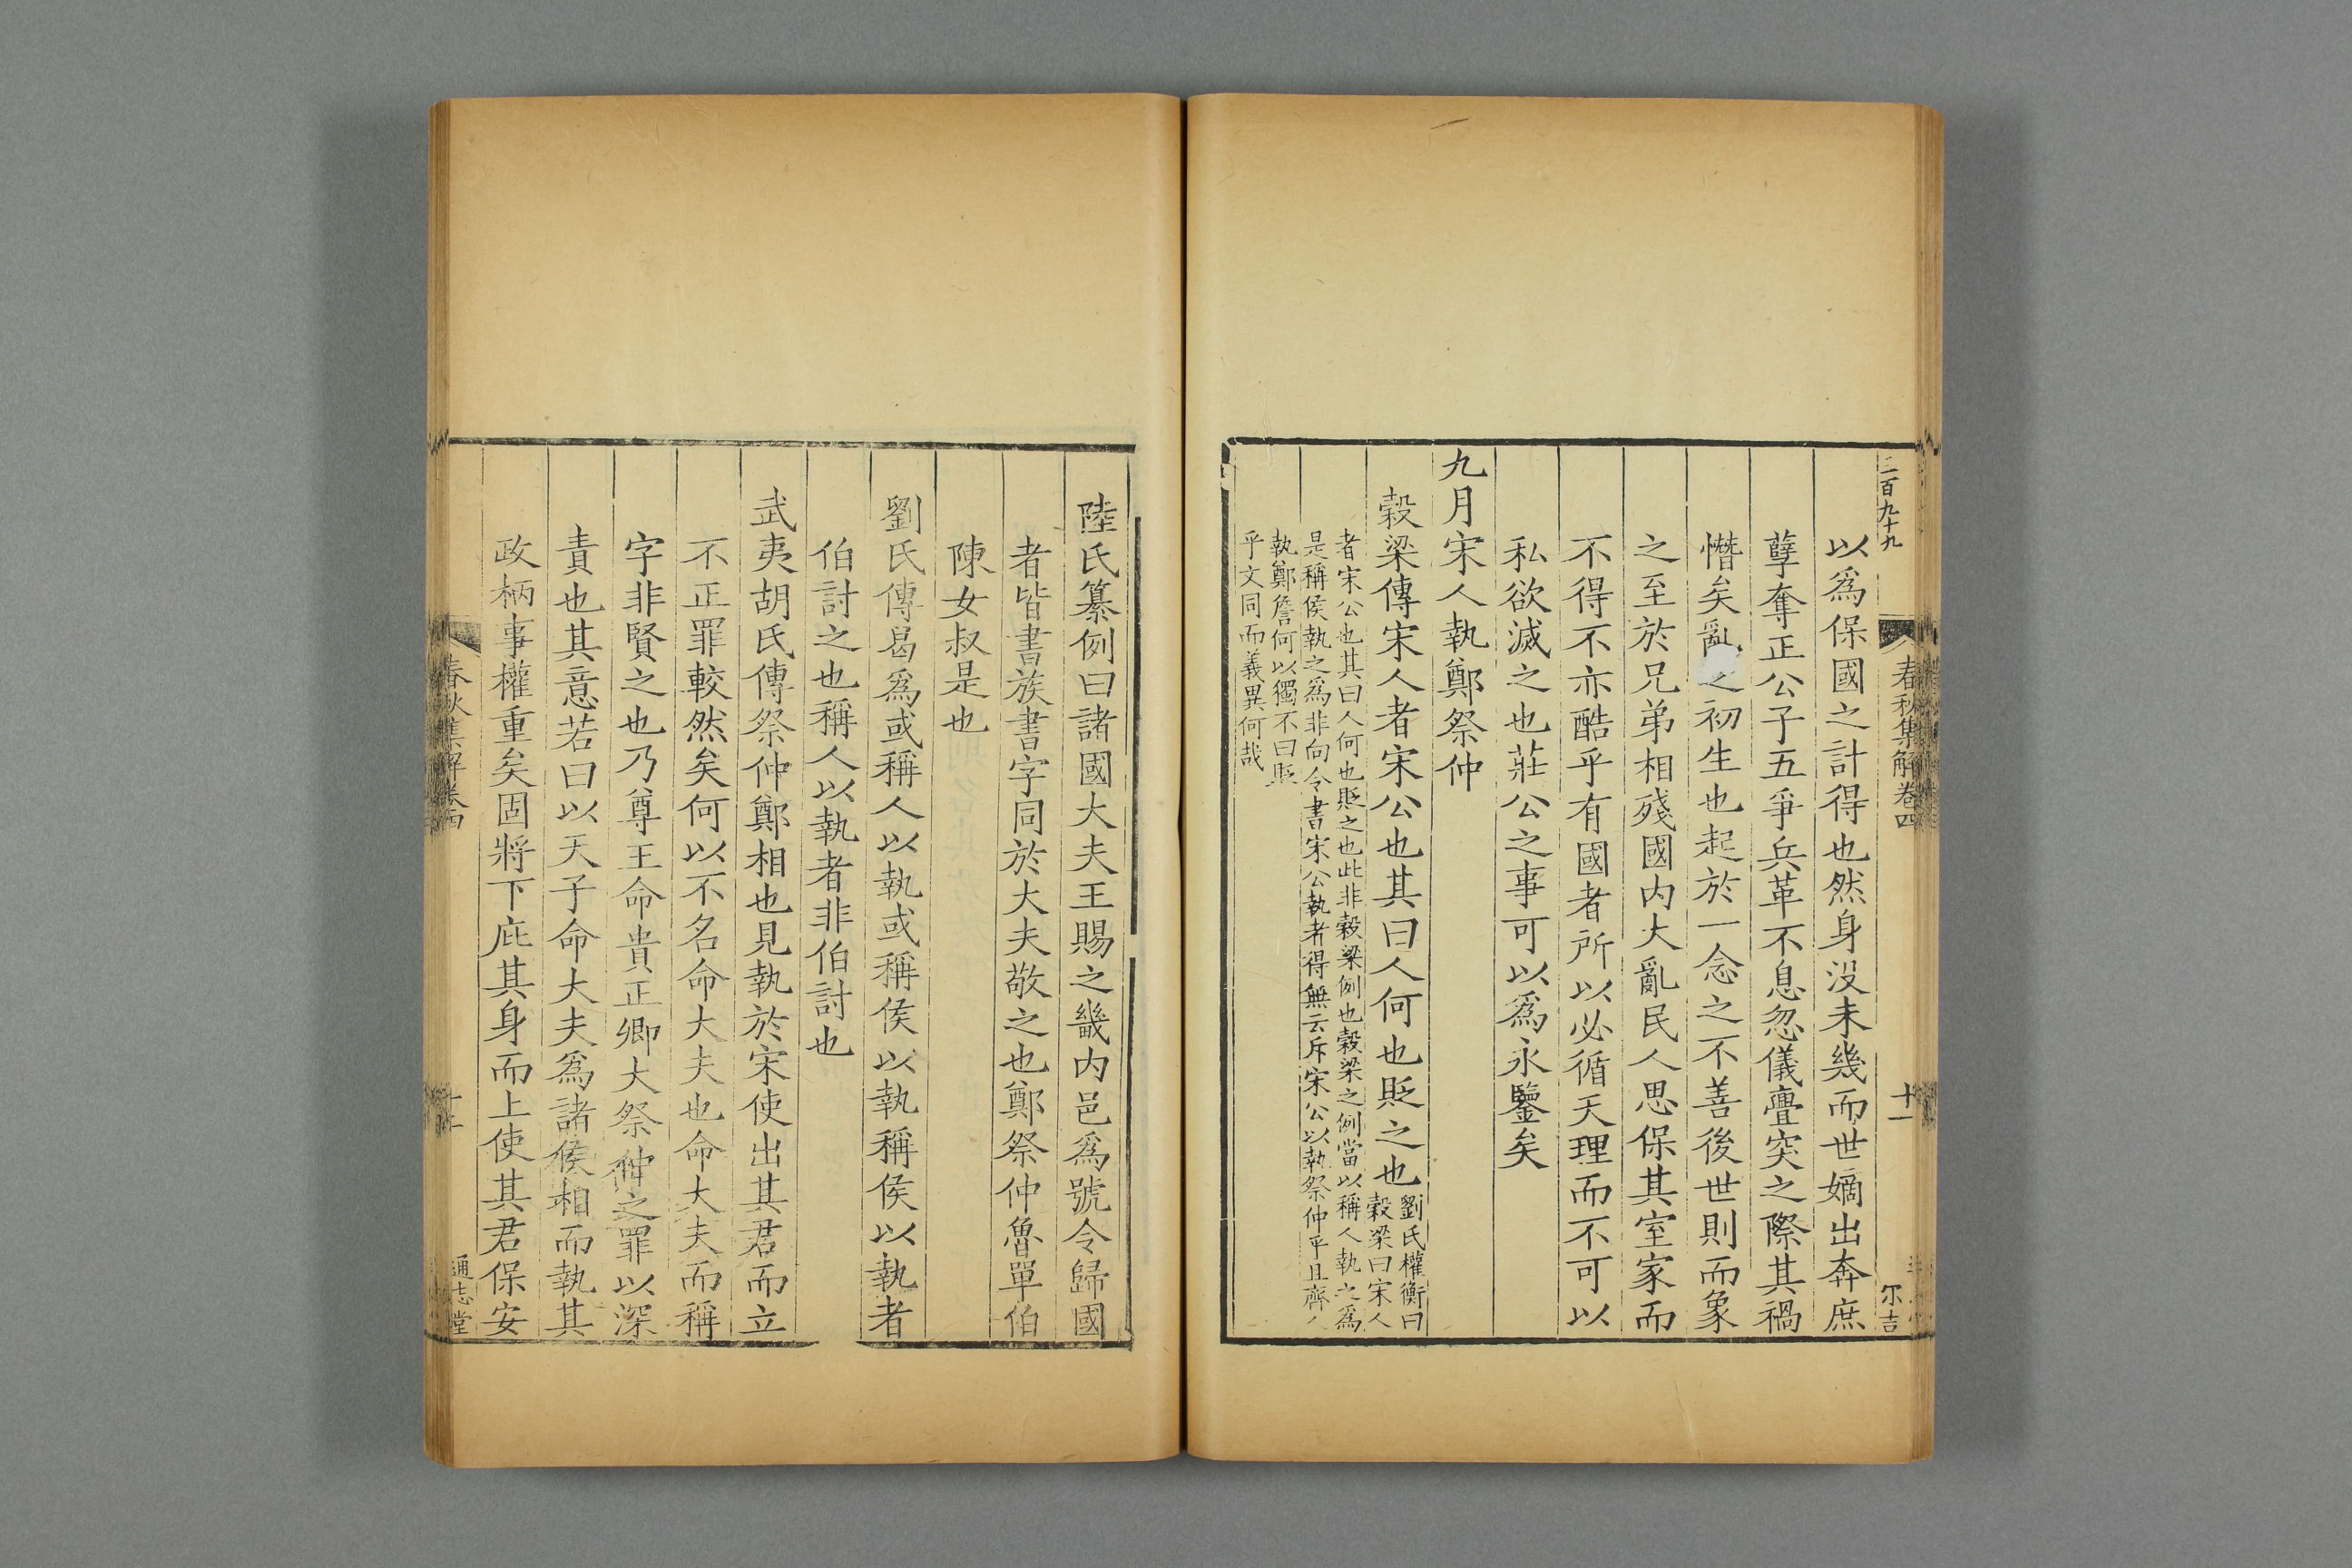 二百九十九
春秋集解卷四
十一
尔吉
以爲保國之計得也然身没未幾而世嫡出奔庶
孽奪正公子五爭兵革不息忽儀亹突之際其禍
憯矣亂之初生也起於一念之不善後世則而象
之至於兄弟相殘國内大亂民人思保其室家而
不得不亦酷乎有國者所以必循天理而不可以
私欲滅之也莊公之事可以爲永鑒矣
九月宋人執鄭祭仲
穀梁傳宋人者宋公也其曰人何也貶之也劉氏權衡曰
穀梁曰宋人
者宋公也其曰人何也貶之也此非穀梁例也穀梁之例當以稱人執之爲
是稱侯執之爲非向令書宋公執者得無云斥宋公以執祭仲乎且齊人
執鄭詹何以獨不曰貶
乎文同而義異何哉
陸氏纂例曰諸國大夫王賜之畿内邑爲號令歸國
者皆書族書字同於大夫敬之也鄭祭仲魯單伯
陳女叔是也
劉氏傳曷爲或稱人以執或稱侯以執稱侯以執者
伯討之也稱人以執者非伯討也
武夷胡氏傳祭仲鄭相也見執於宋使出其君而立
不正罪較然矣何以不名命大夫也命大夫而稱
字非賢之也乃尊王命貴正卿大祭仲之罪以深
責也其意若曰以天子命大夫爲諸侯相而執其
政柄事權重矣固將下庇其身而上使其君保安
春秋集解卷四
通志堂